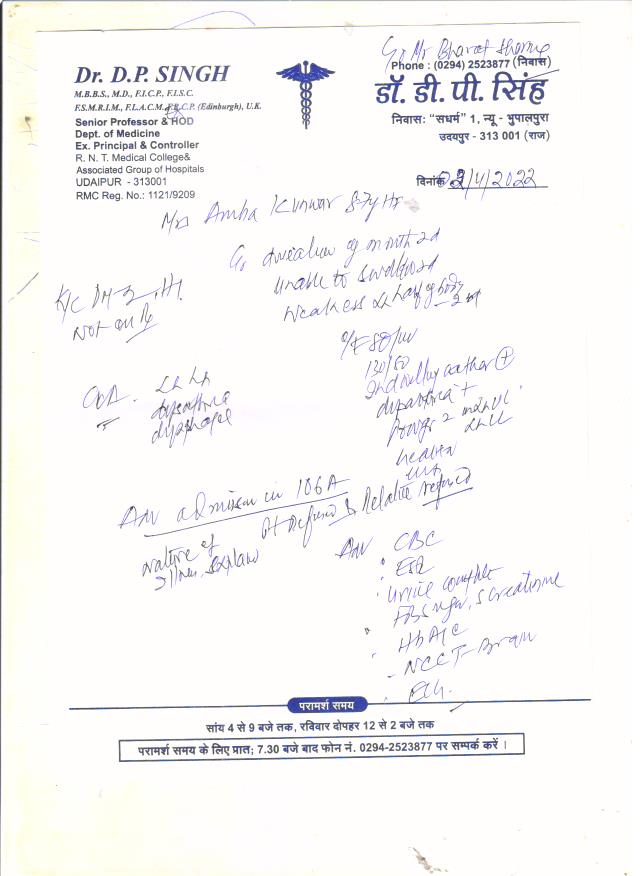 C/o Mr Bharat Sharma
Dr. D.P. SINGH
M.B.B.S., M.D., F.I.C.P., F.I.S.C.
F.S.M.R.I.M., F.L.A.C.M., F.R.C.P. (Edinburgh), U.K.
Senior Professor & HOD
Dept. of Medicine
Ex. Principal & Controller
R. N. T. Medical College&
Associated Group of Hospitals
UDAIPUR - 313001
RMC Reg. No.: 1121/9209
Phone : (0294) 2523877 (निवास)
डॉ. डी. पी. सिंह
निवास: "सधर्म" 1, न्यू - भुपालपुरा
उदयपुर - 313 001 (राज)
दिनांक /4/2022
Mrs Amba Kunwar
deviation of mouth 2d
unable to swallow
weakness Lt half of body
K/c DM
Not on
O/E 80/
130/80
dysarthria +
Power
CVA
dysarthria
dysphagia
Adv admission in 106A
Pt Refused & Relative refused
Nature of
illness, explain
Adv CBC
ESR
Urine complete
S Creatinine
HbA1c
NCCT-Brain
ECG.
परामर्श समय
सांय 4 से 9 बजे तक, रविवार दोपहर 12 से 2 बजे तक
परामर्श समय के लिए प्रात; 7.30 बजे बाद फोन नं. 0294-2523877 पर सम्पर्क करें ।